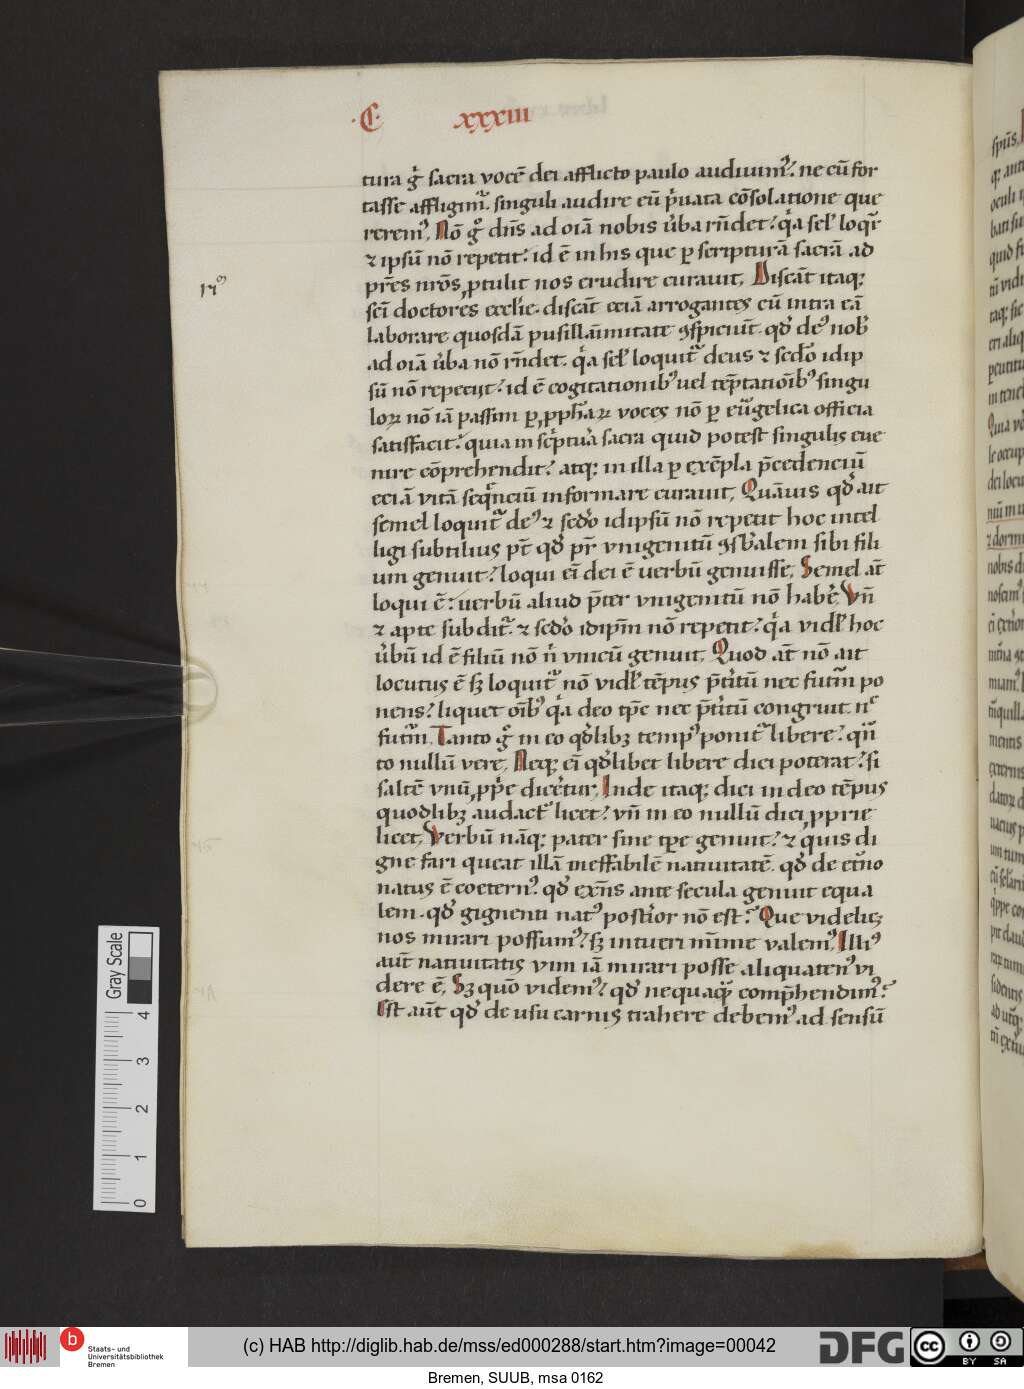 ·C· xxxiii
tura gͦ sacra vocē dei afflicto paulo audiuim᷒. ne cū for
tasse affligim᷒. singuli audire eū p̍uata cōsolatione que
rerem᷒. Nō gͦ dn̄s ad oīa nobis v̓ba rn̄det. q̍a sel̓ loqt᷑
⁊ ipsū nō repetit. id ē in his que ꝑ scripturā sacrā ad
pr̄es nr̄os ꝓtulit nos erudire curauit, Discāt itaq;
sci̓ doctores eccl̓ie. discāt eciā arrogantes cū intra eā
laborare quosdā pusillaīmitate ꝯspiciūt. qđ de᷒ nob̓
ad oīa v̓ba nō rn̄det. q̍a sel̓ loquit᷑ deus ⁊ sed̓o idip
sū nō repetijt. id ē cogitationib᷒ uel tēptatiōib᷒ singu
loꝝ nō iā passim ꝑ ꝓph̄aꝝ voces nō ꝑ eūgelica officia
satisfacit. quia in sc̍ptura sacra quid potest singulis eue
nire cōprehendit. atq; in illa ꝑ exēpla p̄cedenciū
eciā vitā seq̄nciū informare curauit, Quāuis qđ ait
semel loquit᷑ de᷒ ⁊ sed̓o idipsū nō repetit hoc intel
ligi subtilius pt̄ qđ pr̄ vnigenitū ꝯsb̓alem sibi fili
um genuit. loqui ei̓ dei ē uerbū genuisse, Semel at̄
loqui ē. uerbū aliud p̄ter vnigenitū nō habe̓. Vn̄
⁊ apte subdit᷑. ⁊ sed̓o idip̄m nō repetit. q̍a vidl̓ hoc
v̓bū id ē filiū nō n̍ vnicū genuit, Quod at̄ nō ait
locutus ē sꝫ loquit᷑ nō vidl̓ tēpus p̄titū nec futuꝝ po
nens. liquet oīb᷒ q̍a deo tp̄e nec p̄titū congruit nͨ
futuꝝ. Tanto gͦ in eo qđlibꝫ temp᷒ ponit᷑ libere. qn̄
to nullū vere, Neq; ei̓ qđlibet libere dici poterat. si
saltē vnū ꝓp̍e dicetur, Inde itaq; dici in deo tēpus
quodlibꝫ audact̓ licet. vn̄ in eo nullū dici ꝓprie
licet, Verbū nāq; pater sine tp̄e genuit. ⁊ quis di
gne fari queat illā ineffabilē natiuitatē. qđ de et̄no
natus ē coetern᷒. qđ exn̄s ante secula genuit equa
lem. qđ gignenti nat᷒ post̍or nō est. Que videlicꝫ
nos mirari possum᷒. sꝫ intueri mīme valem᷒, Illi᷒
aūt natiuitatis vim iā mirari posse aliquaten᷒ vi
dere ē, Sꝫ quō videm᷒. qđ nequaq̄ comp̄hendim᷒.
Est aūt qđ de usu carnis trahere debem᷒ ad sensū
Gray Scale
4
3
2
1
0
b
Staats- und
Universitätsbibliothek
Bremen
(c) HAB http://diglib.hab.de/mss/ed000288/start.htm?image=00042
DFG
cc BY SA
Bremen, SUUB, msa 0162